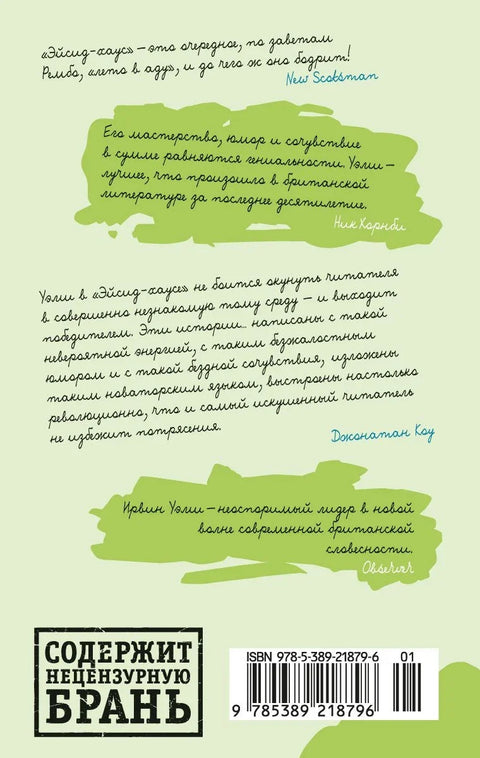 «Эйсид-хаус» — это очередное, по заветам
Рембо, «лето в аду», и до чего ж оно бодрит!
New Scotsman
Его мастерство, юмор и сочувствие
в сумме равняются гениальности. Уэлш —
лучшее, что произошло в британской
литературе за последнее десятилетие.
Ник Хорнби
Уэлш в «Эйсид-хаусе» не боится окунуть читателя
в совершенно незнакомую тому среду — и выходит
победителем. Эти истории написаны с такой
невероятной энергией, с таким безжалостным
юмором и с такой бездной сочувствия, изложены
таким новаторским языком, выстроены настолько
революционно, что и самый искушенный читатель
не избежит потрясения.
Джонатан Коу
Ирвин Уэлш — неоспоримый лидер в новой
волне современной британской
словесности.
Observer
СОДЕРЖИТ
НЕЦЕНЗУРНУЮ
БРАНЬ
ISBN 978-5-389-21879-6 01
9 785389 218796